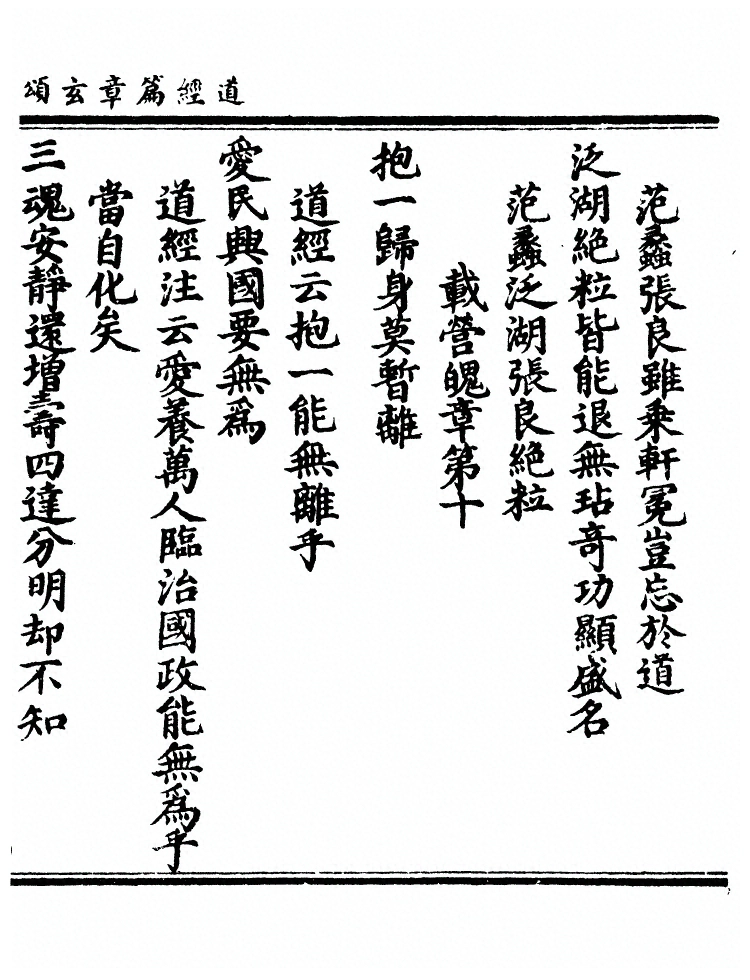 道經篇章玄頌
范蠡張良雖乘軒冕豈忘於道
泛湖絶粒皆能退無玷奇功顯盛名
范蠡泛湖張良絶粒
載營魄章第十
抱一歸身莫暫離
道經云抱一能無離乎
愛民興國要無爲
道經注云愛養萬人臨治國政能無爲乎
當自化矣
三魂安靜還增壽四達分明却不知